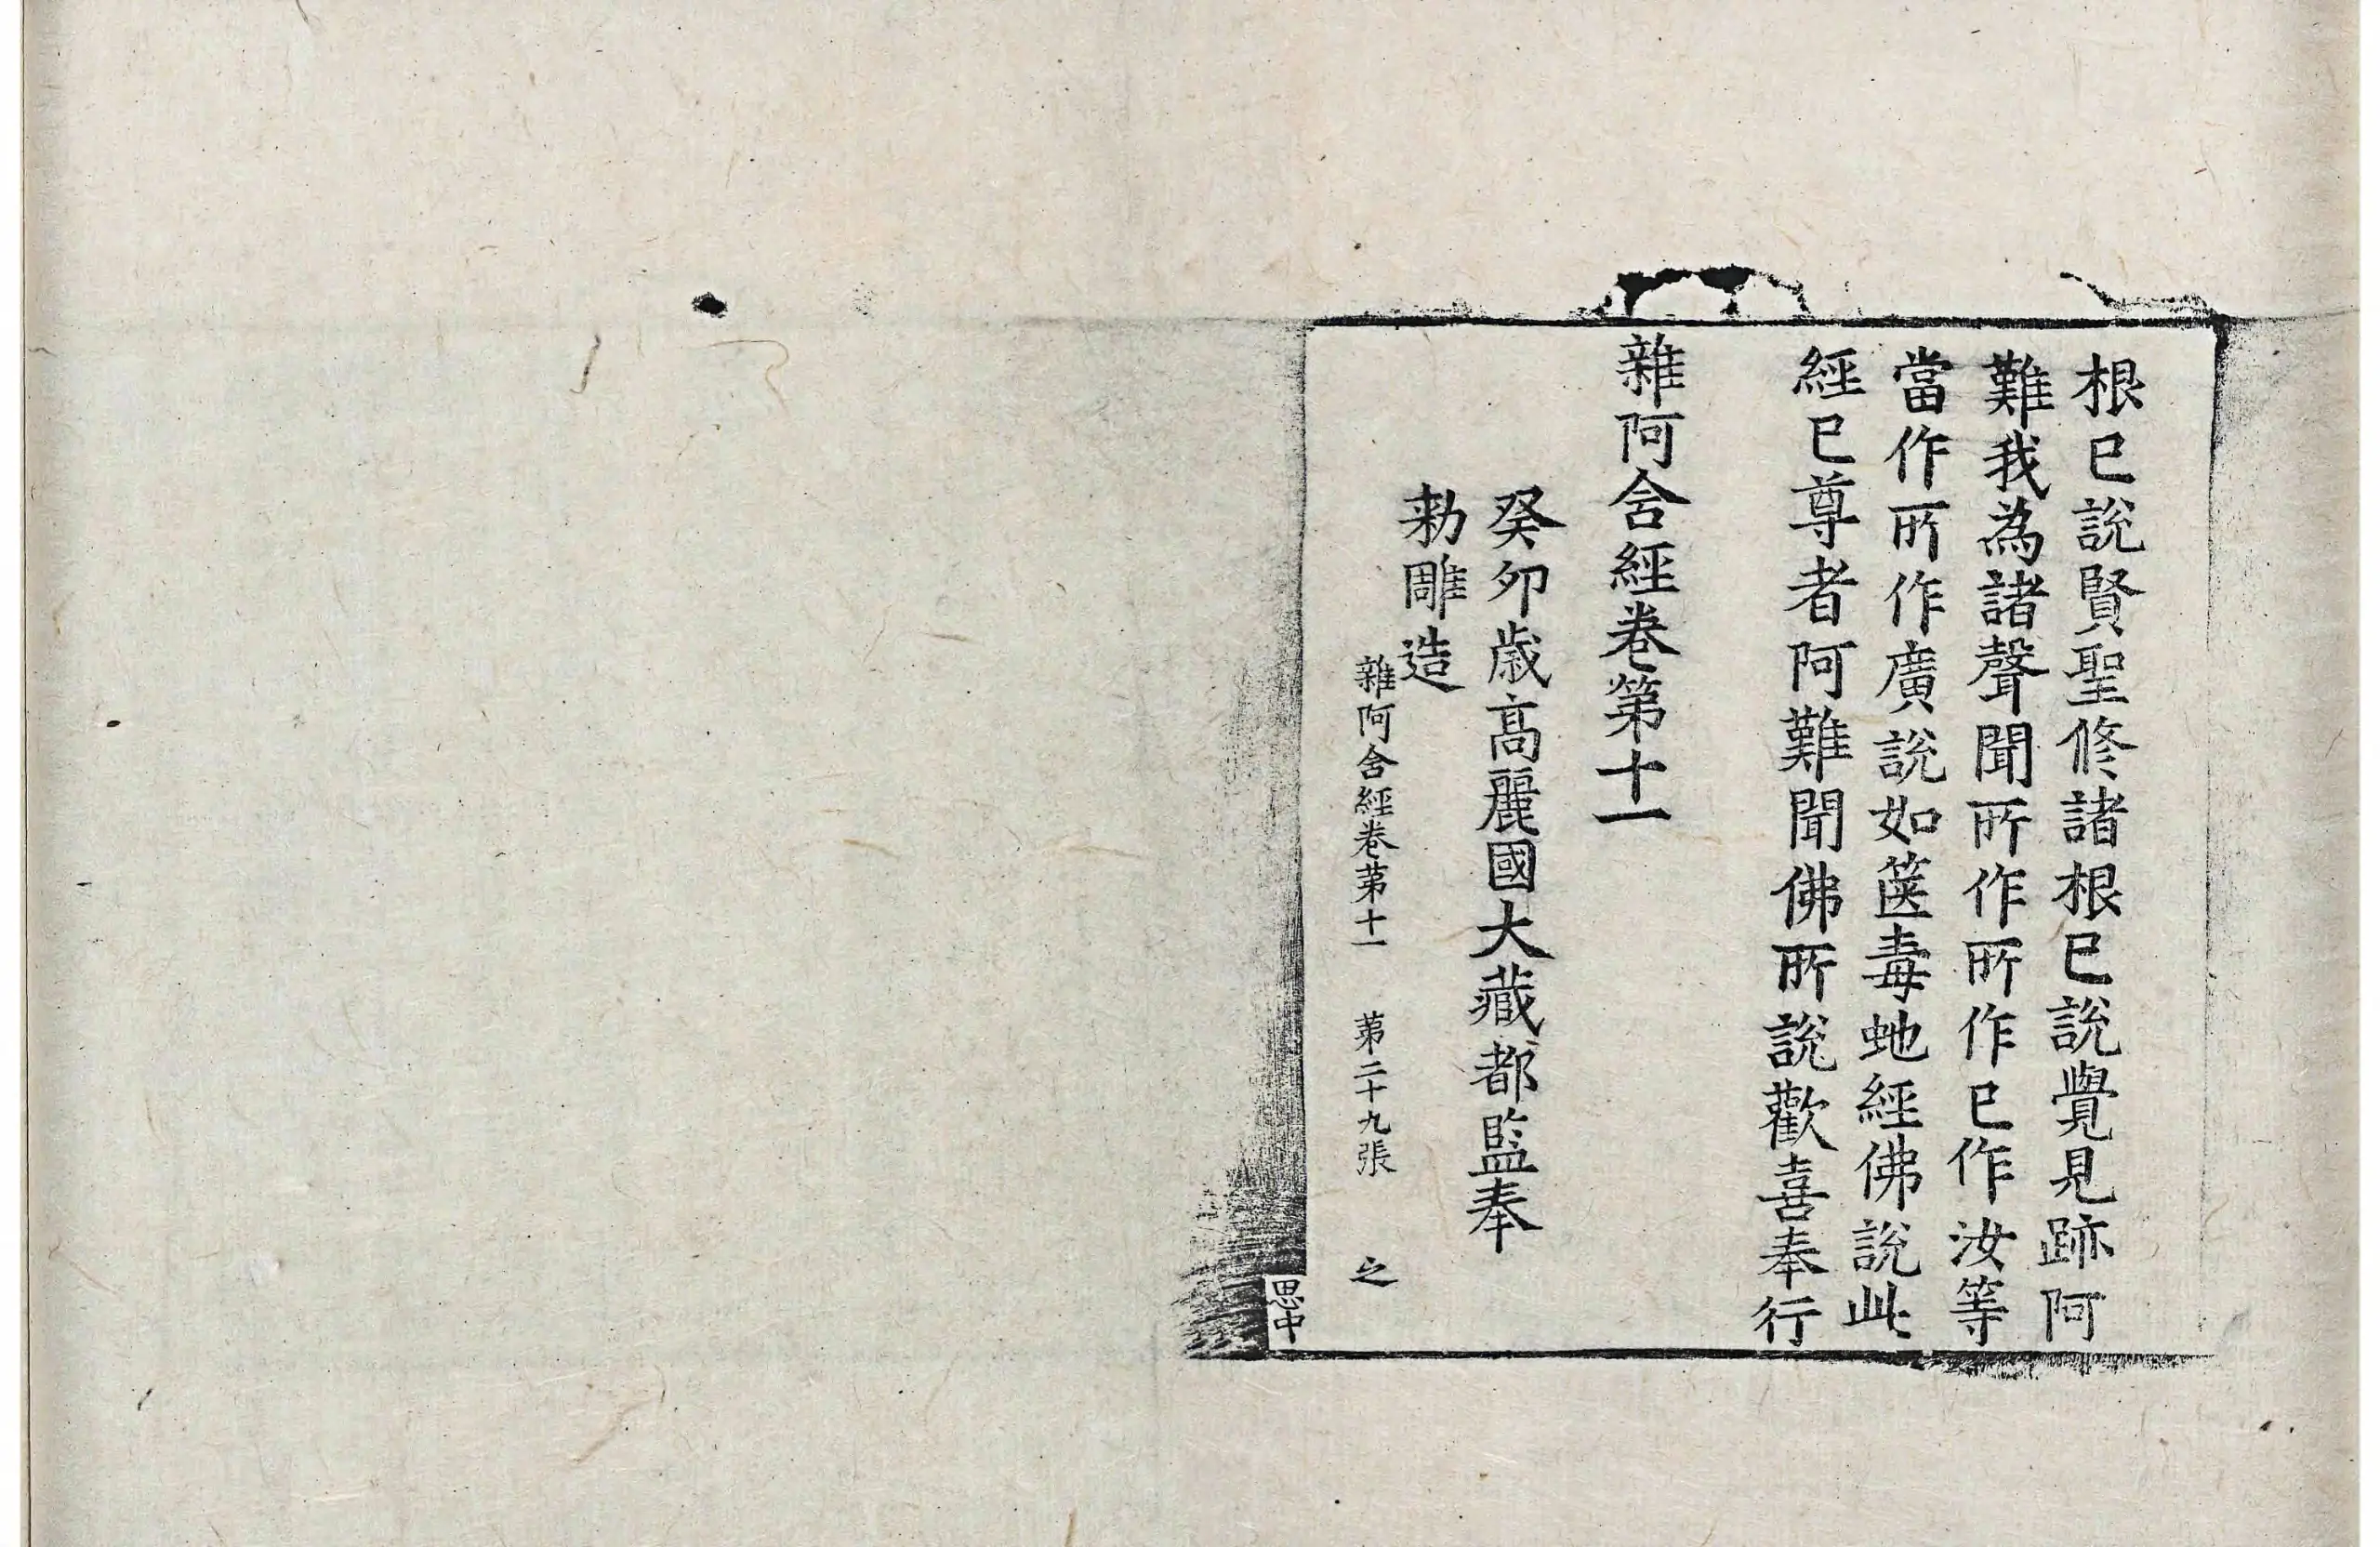 根已說賢聖修諸根已說覺見跡阿
難我為諸聲聞所作所作已作汝等
當作所作廣說如篋毒虵經佛說此
經已尊者阿難聞佛所說歡喜奉行
雜阿含經卷第十一
癸卯歲高麗國大藏都監奉
勅雕造
雜阿含經卷第十一 第二十九張 之
思中